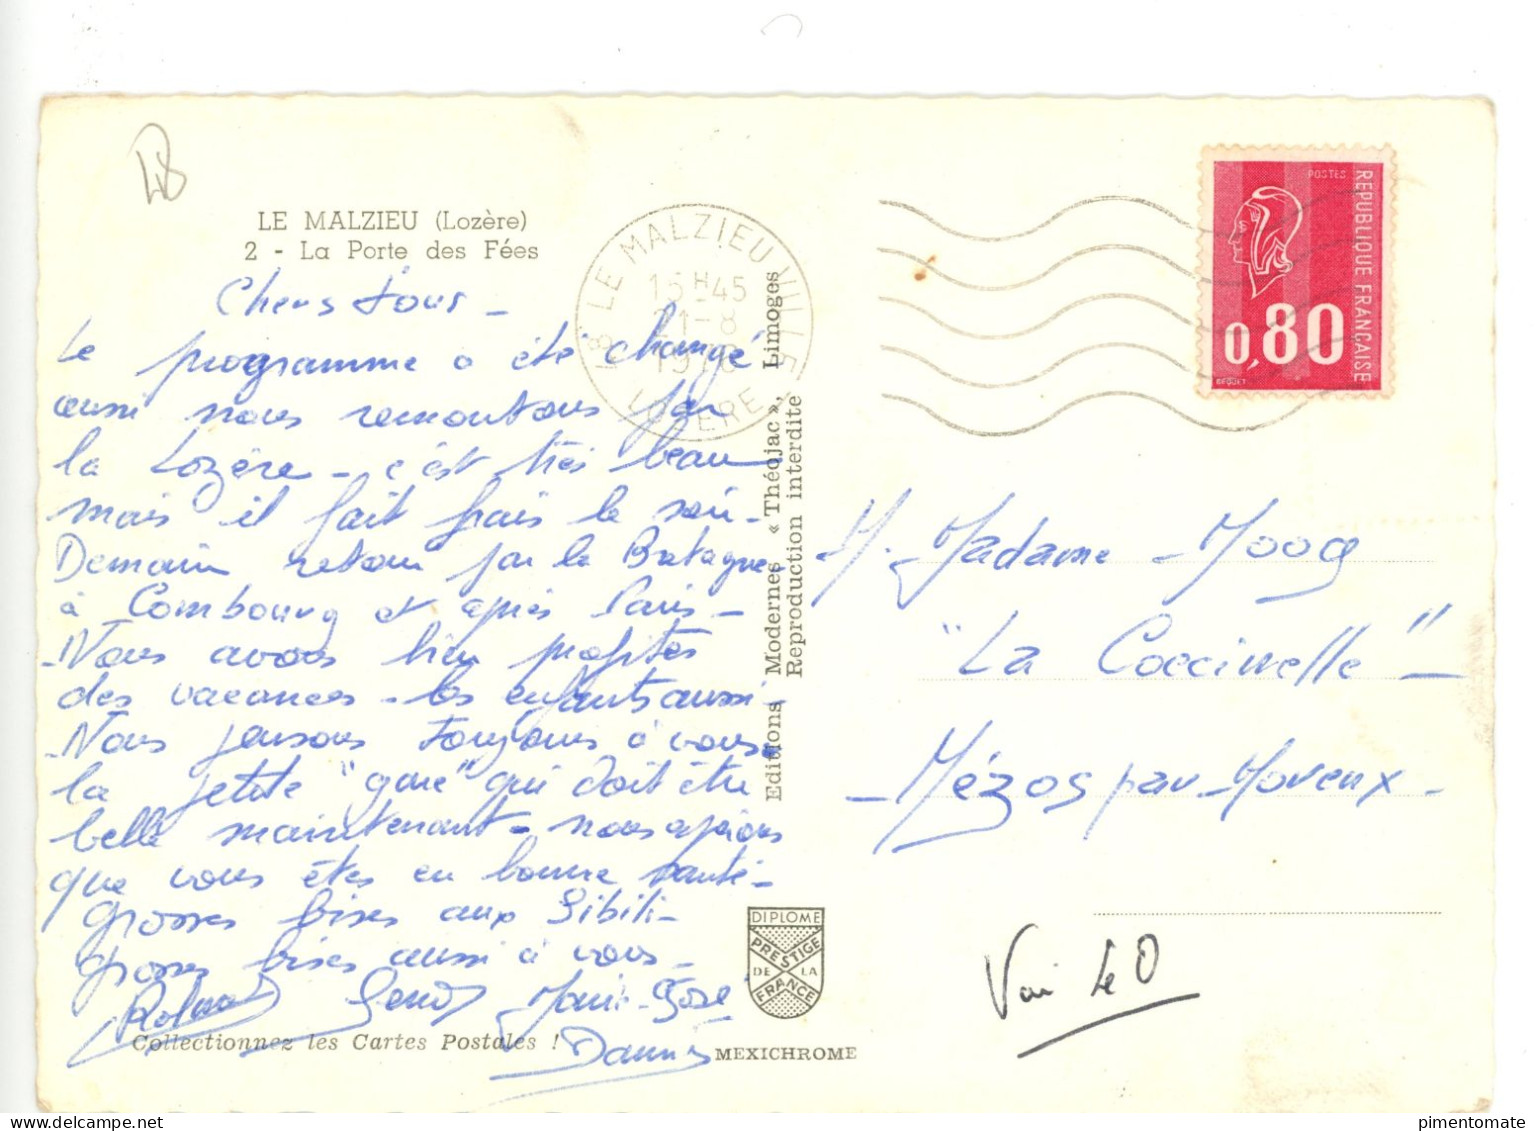 48
LE MALZIEU (Lozère)
2 - La Porte des Fées
Chers tous -
Le programme a été changé
aussi nous remontons par
la Lozère - c'est très beau
mais il fait frais le soir -
Demain retour par la Bretagne
à Combourg et après Paris -
- Nous avons bien profités
des vacances - les enfants aussi -
- Nous pensons toujours à vous
la petite "gare" qui doit être
belle maintenant - nous espérons
que vous êtes en bonne santé -
Grosses bises aux Sibili -
grosses bises aussi à vous -
Roland Marie-José
Dannis
Collectionnez les Cartes Postales !
48 LE MALZIEU VILLE
15H45
21-8
LOZERE
Editions Modernes « Théojac », Limoges
Reproduction interdite
DIPLOME
PRESTIGE
DE LA
FRANCE
MEXICHROME
POSTES
REPUBLIQUE FRANÇAISE
0,80
BEQUET
M. Madame Mooq
"La Coccinelle" -
- Mézos par Morcenx -
Voir le D
pimentomate